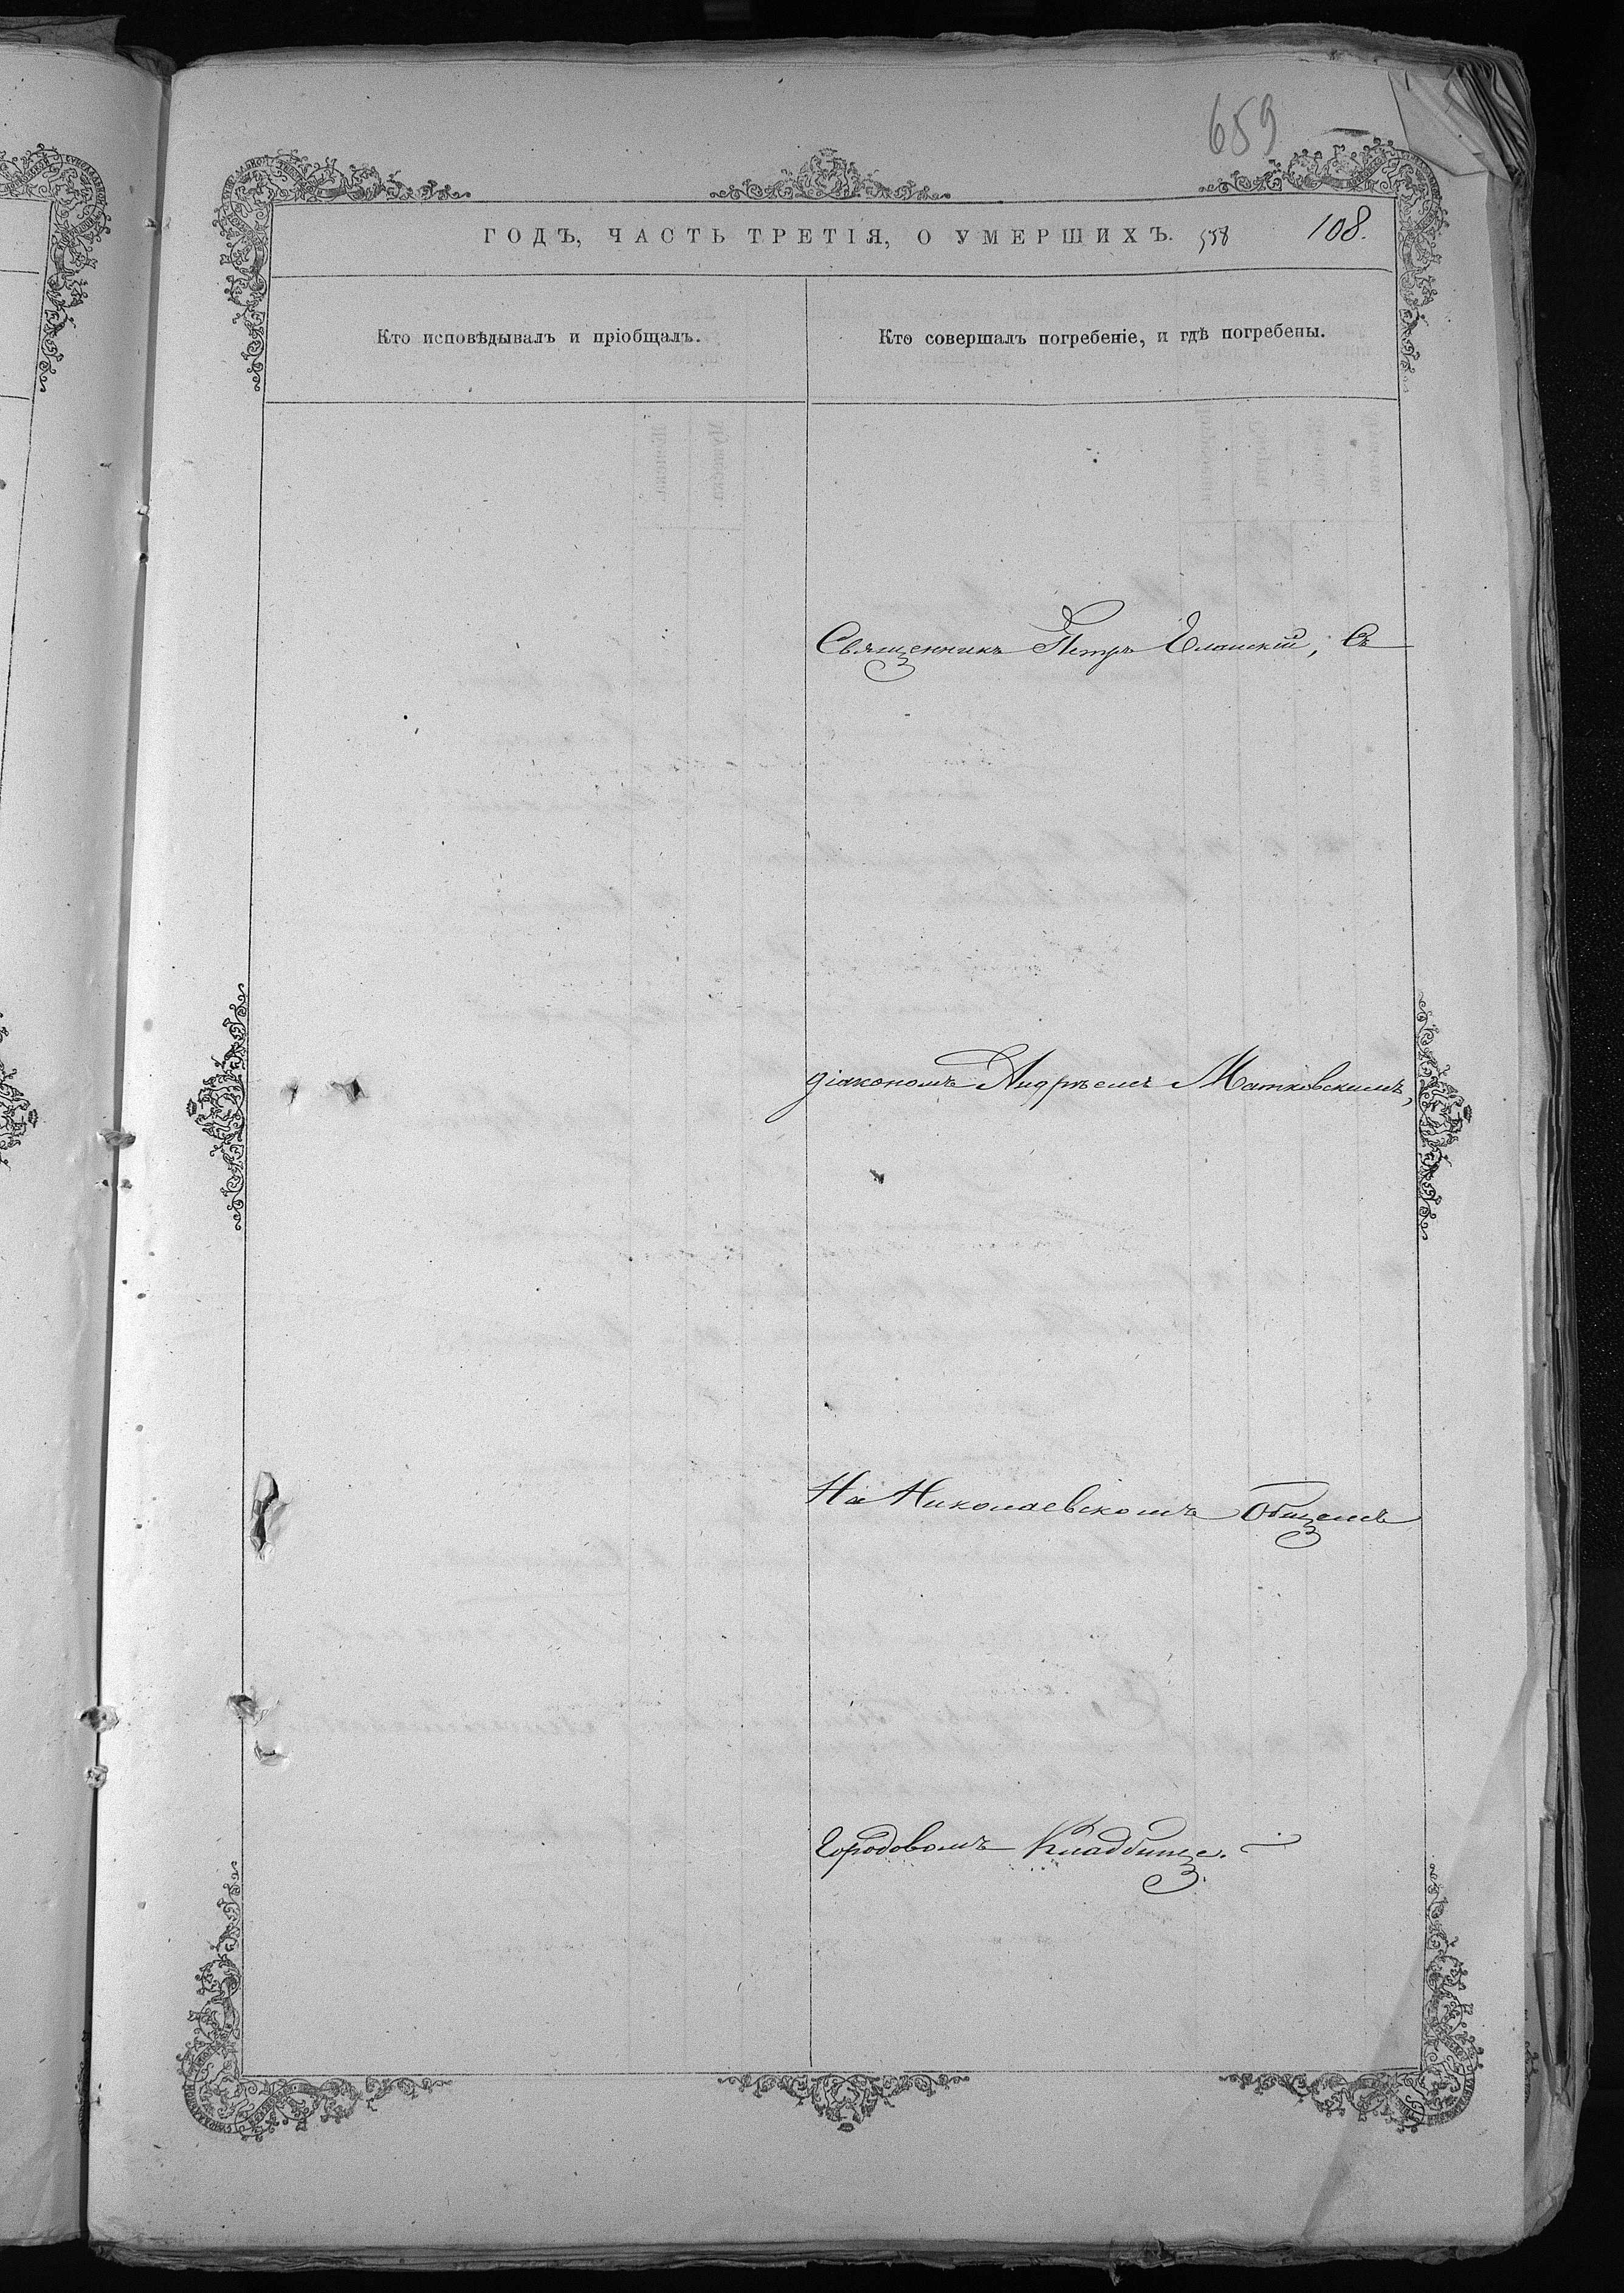 659
ГОДЪ, ЧАСТЬ ТРЕТІЯ, О УМЕРШИХЪ. 558 108.
Кто исповѣдывалъ и пріобщалъ.
Кто совершалъ погребеніе, и гдѣ погребены.
Священникъ Петръ Еланскій, съ
діакономъ Андреемъ Матковскимъ,
На Николаевскомъ Общемъ
Городовомъ Кладбище.